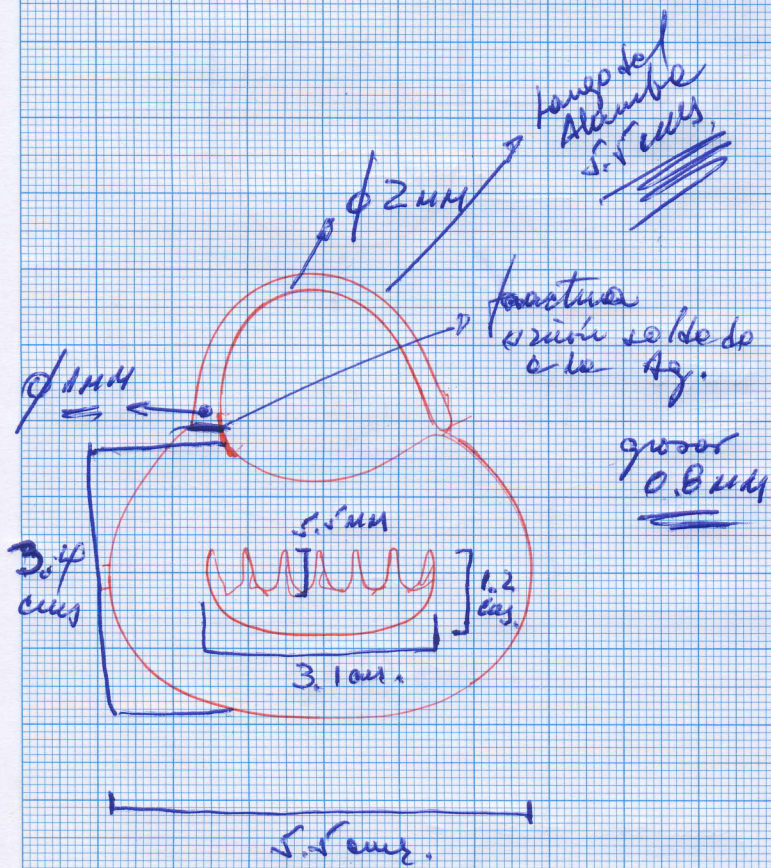 Alambre
5.5 cms.
ϕ 2 MM
fractura
unión soldada
a la Ag.
ϕ 1 MM
grosor
0.8 MM
5.5 MM
3.4
cms
1.2
cms.
3.1 cms.
5.5 cms.